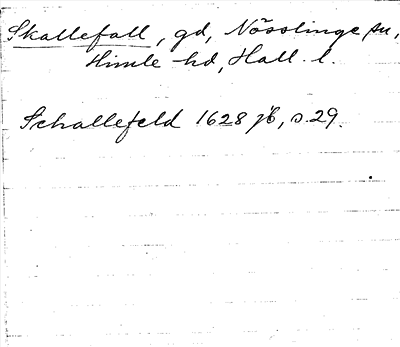 Skallefall, gd, Nösslinge sn,
Himle hd, Hall. l.
Schallefeld 1628 jb, s. 29.